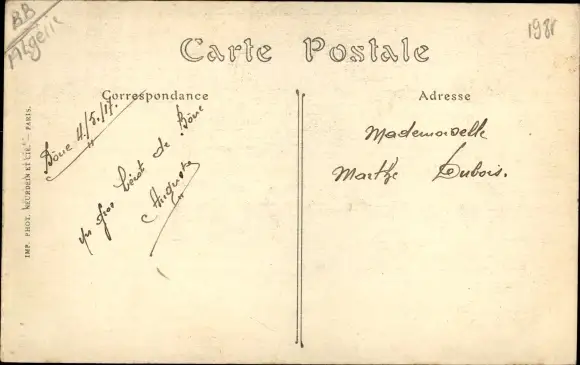 BB
Algerie
1981
Carte Postale
Correspondance
Adresse
Bône 4/5/17.
un gros bécot de Bône
Auguste
Mademoiselle
Marthe Dubois.
IMP. PHOT. NEURDEIN ET CIE. — PARIS.